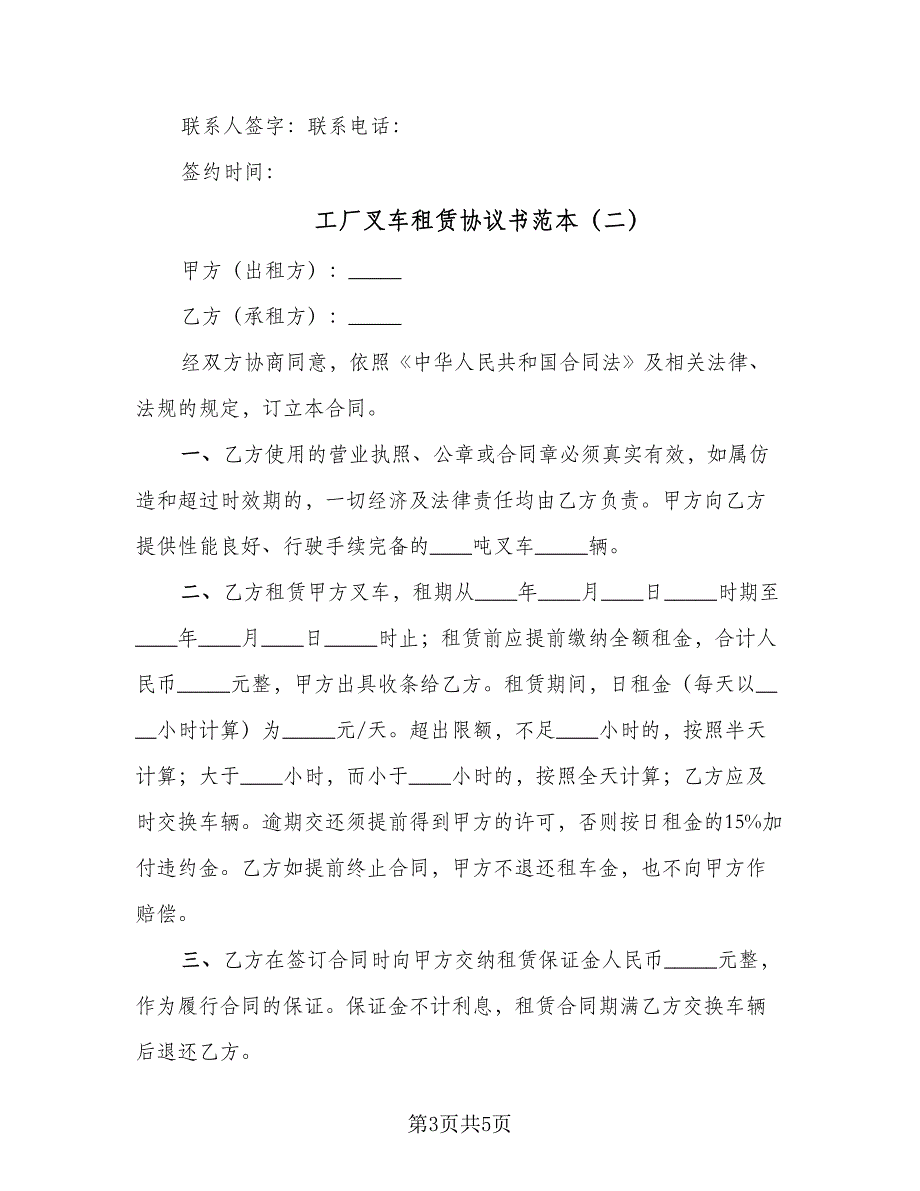 联系人签字：联系电话：
签约时间：
工厂叉车租赁协议书范本（二）
甲方（出租方）：_____
乙方（承租方）：_____
经双方协商同意，依照《中华人民共和国合同法》及相关法律、
法规的规定，订立本合同。
一、乙方使用的营业执照、公章或合同章必须真实有效，如属仿
造和超过时效期的，一切经济及法律责任均由乙方负责。甲方向乙方
提供性能良好、行驶手续完备的____吨叉车_____辆。
二、乙方租赁甲方叉车，租期从____年____月____日_____时期至
____年____月____日_____时止；租赁前应提前缴纳全额租金，合计人
民币_____元整，甲方出具收条给乙方。租赁期间，日租金（每天以__
__小时计算）为_____元/天。超出限额，不足____小时的，按照半天
计算；大于____小时，而小于____小时的，按照全天计算；乙方应及
时交换车辆。逾期交还须提前得到甲方的许可，否则按日租金的15%加
付违约金。乙方如提前终止合同，甲方不退还租车金，也不向甲方作
赔偿。
三、乙方在签订合同时向甲方交纳租赁保证金人民币_____元整，
作为履行合同的保证。保证金不计利息，租赁合同期满乙方交换车辆
后退还乙方。
第3页共5页